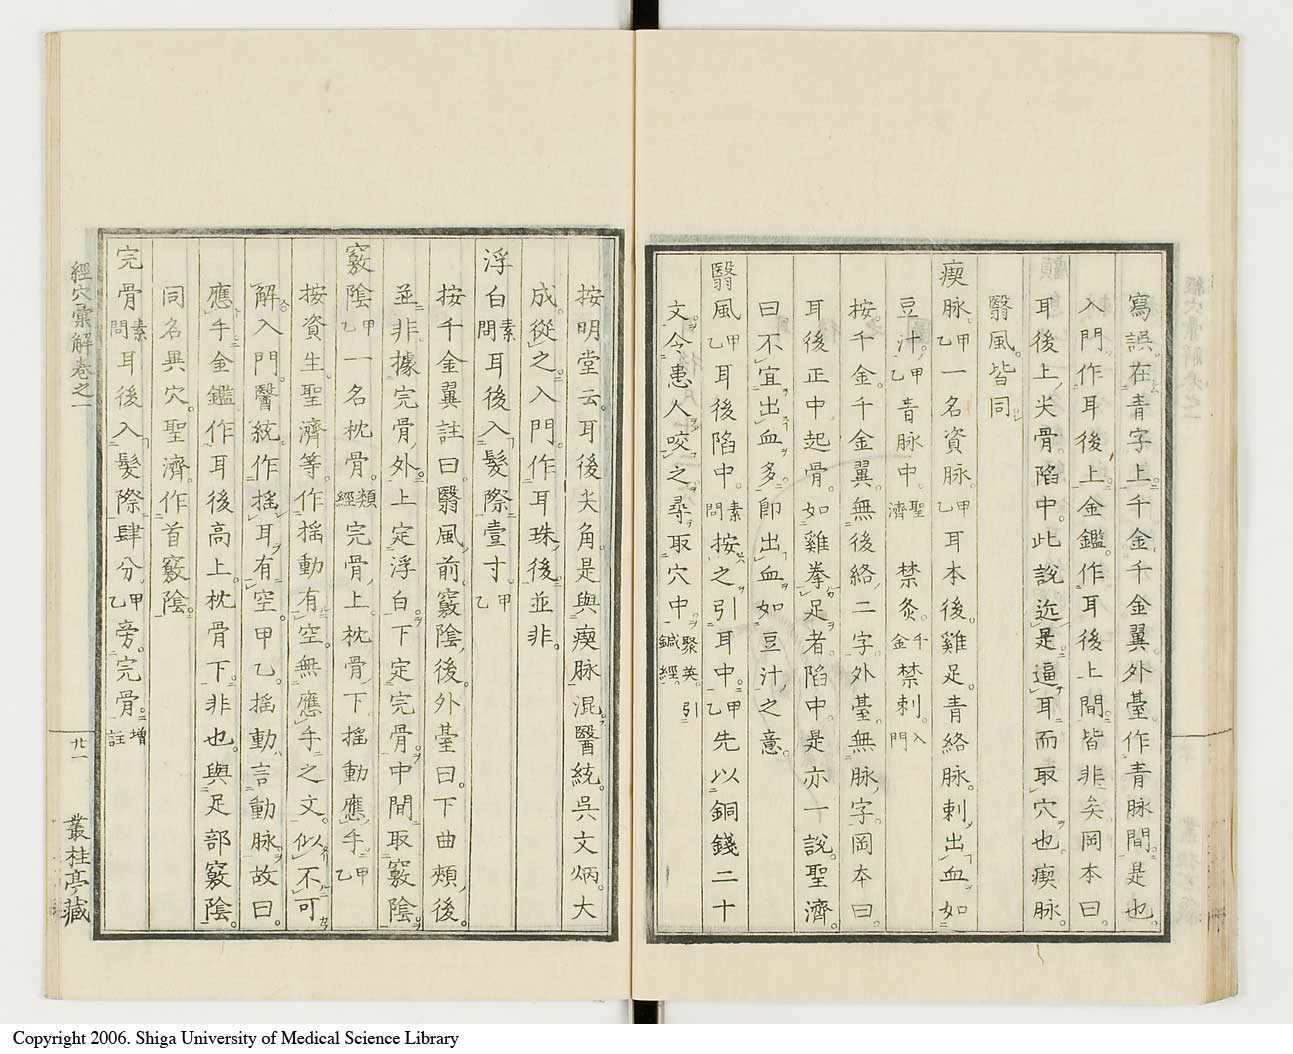 寫誤在青字上千金千金翼外臺作青脉間是也
入門作耳後上金鑑作耳後上間皆非矣岡本曰
耳後上尖骨陷中此說近是逼耳而取穴也瘈脉
翳風皆同
瘈脉甲乙一名資脉甲乙耳本後雞足青絡脉刺出血如
豆汁甲乙青脉中聖濟禁灸千金禁刺入門
按千金千金翼無後絡二字外臺無脉字岡本曰
耳後正中起骨如雞拳足者陷中是亦一說聖濟
曰不宜出血多卽出血如豆汁之意
翳風甲乙耳後陷中素問按之引耳中甲乙先以銅錢二十
文令患人咬之尋取穴中聚英引鍼經
按明堂云耳後尖角是與瘈脉混醫統吳文炳大
成從之入門作耳珠後並非
浮白素問耳後入髮際壹寸甲乙
按千金翼註曰翳風前竅陰後外臺曰下曲頰後
並非據完骨外上定浮白下定完骨中間取竅陰
竅陰甲乙一名枕骨類經完骨上枕骨下搖動應手甲乙
按資生聖濟等作搖動有空無應手之文似不可
解入門醫統作搖耳有空甲乙搖動言動脉故曰
應手金鑑作耳後高上枕骨下非也與足部竅陰
同名異穴聖濟作首竅陰
完骨素問耳後入髮際肆分甲乙旁完骨增註
經穴彙解卷之一
廿一
叢桂亭藏
Copyright 2006. Shiga University of Medical Science Library